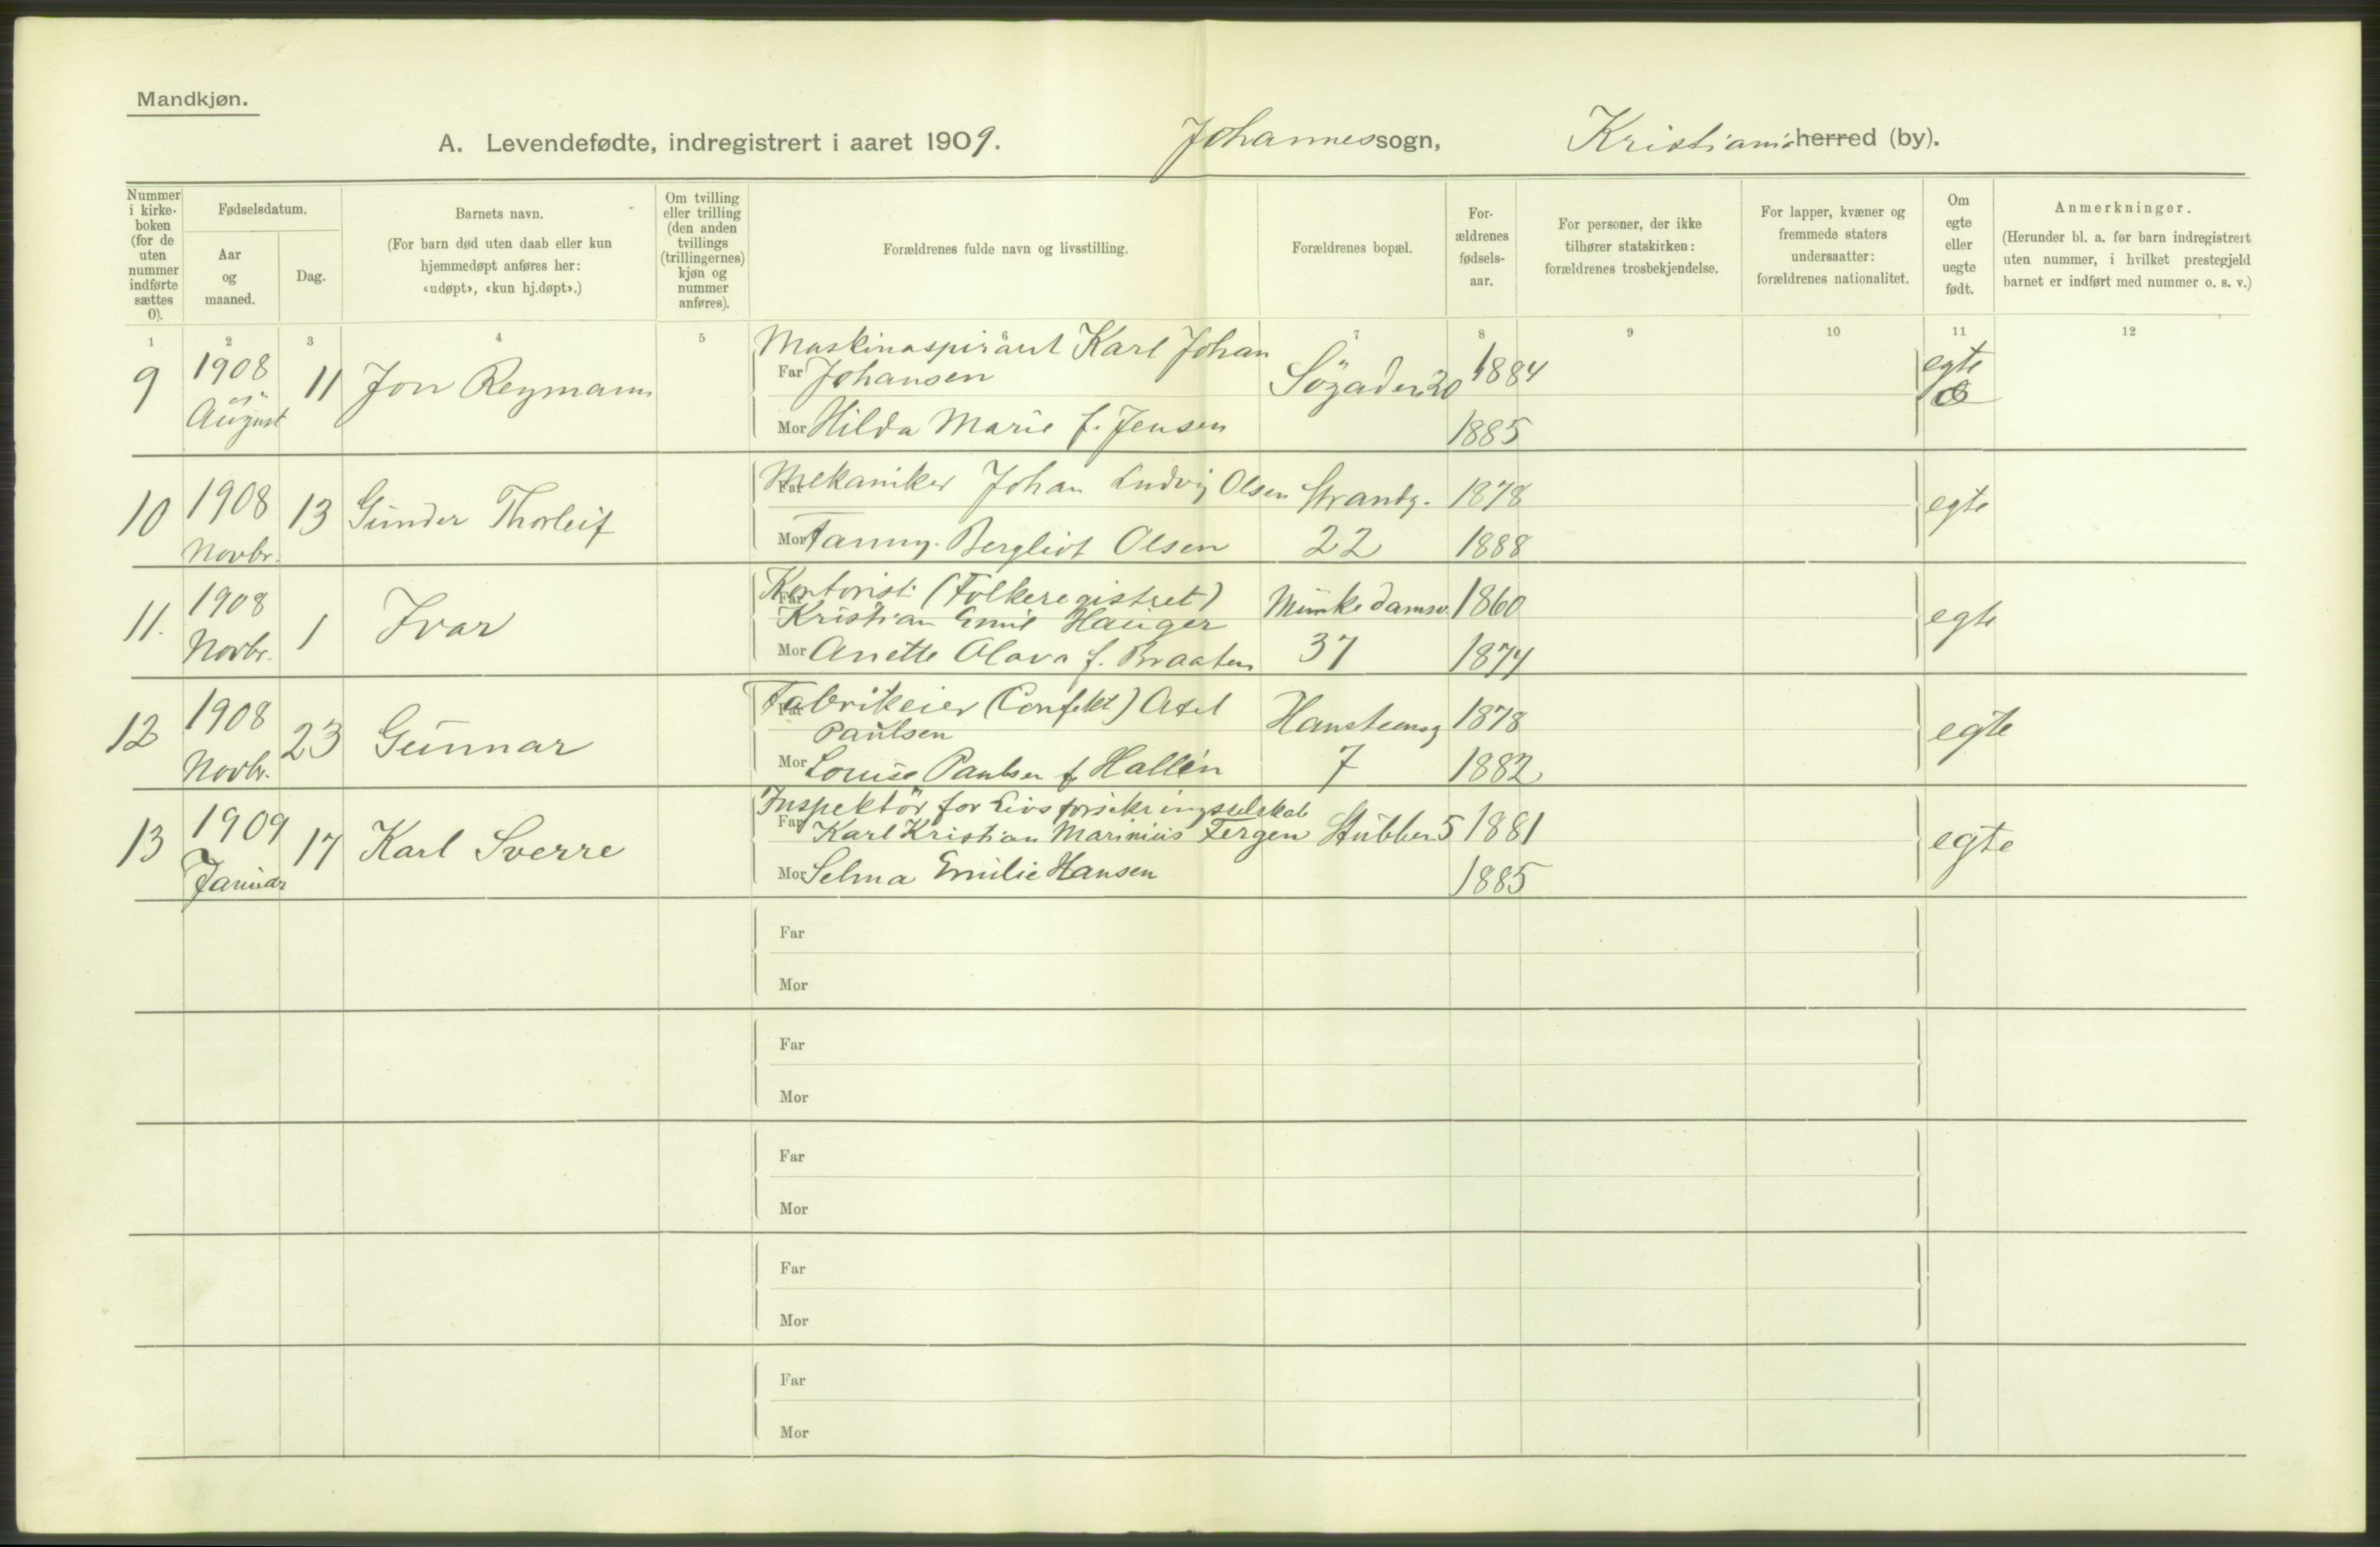 Mandkjøn.
A. Levendefødte, indregistrert i aaret 1909. Johannes sogn, Kristiania herred (by).
Nummer i kirke-boken (for de uten nummer indførte sættes 0).
Fødselsdatum.
Aar og maaned.
Dag.
Barnets navn.
(For barn død uten daab eller kun hjemmedøpt anføres her: «udøpt», «kun hj.døpt».)
Om tvilling eller trilling (den anden tvillings (trillingernes) kjøn og nummer anføres).
Forældrenes fulde navn og livsstilling.
Forældrenes bopæl.
For-ældrenes fødsels-aar.
For personer, der ikke tilhører statskirken: forældrenes trosbekjendelse.
For lapper, kvæner og fremmede staters undersaatter: forældrenes nationalitet.
Om egte eller uegte født.
Anmerkninger.
(Herunder bl. a. for barn indregistrert uten nummer, i hvilket prestegjeld barnet er indført med nummer o. s. v.)
1 2 3 4 5 6 7 8 9 10 11 12
9 1908 August 11 Jon Reymann
Maskinaspirant Karl Johan
Far Johansen Søgaden 20 1884 egte
Mor Hilda Marie f. Jensen 1885
10 1908 Novbr. 13 Gunder Thorleif
Far Mekaniker Johan Ludvig Olsen Strandg. 1878 egte
Mor Fanny Bergliot Olsen 22 1888
11. 1908 Novbr. 1 Ivar
Far Kontorist (Folkeregistret)
Kristian Emil Hauger Munkedamsv. 1860 egte
Mor Anette Olava f. Braaten 37 1874
12 1908 Novbr. 23 Gunnar
Far Fabrikeier (Confekt) Axel
Paulsen Hansteensg 1878 egte
Mor Louise Paulsen f. Hallén 7 1882
13 1909 Januar 17 Karl Sverre
Inspektör for Livsforsikringsselskab
Far Karl Kristian Marinius Tergen Stubben 5 1881 egte
Mor Selma Emilie Hansen 1885
Far
Mor
Far
Mor
Far
Mor
Far
Mor
Far
Mor